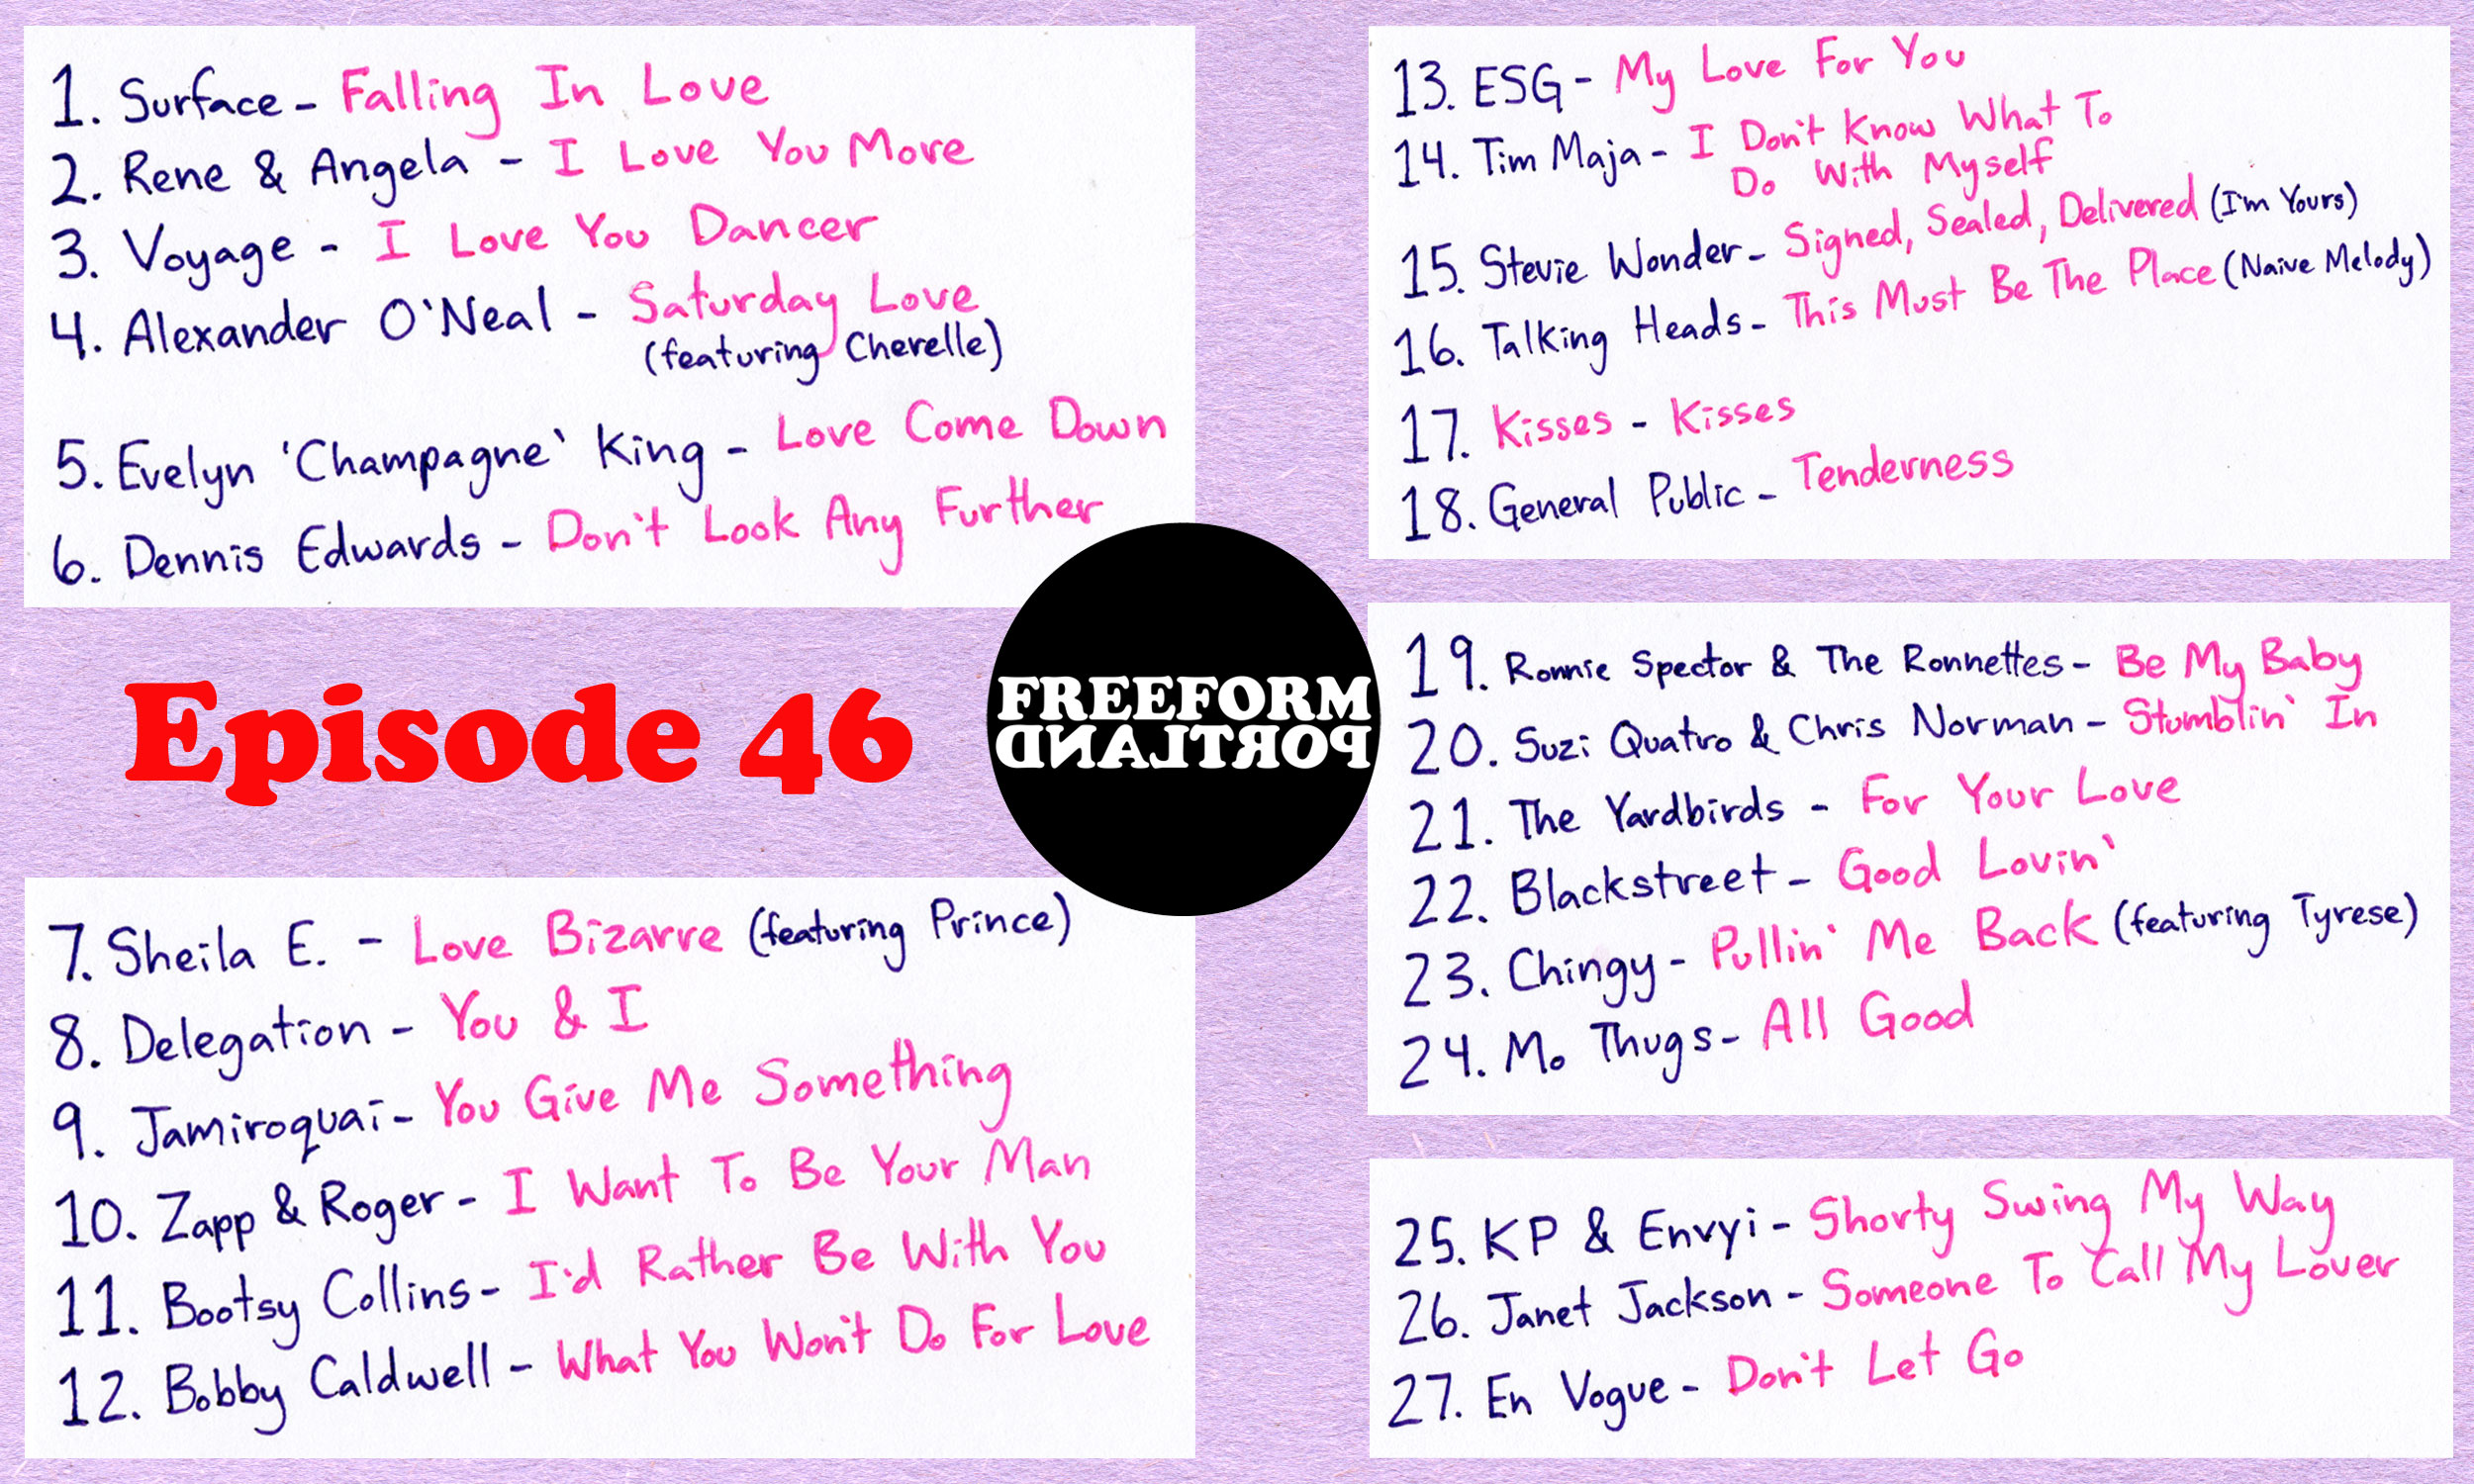 1. Surface - Falling In Love
2. Rene & Angela - I Love You More
3. Voyage - I Love You Dancer
4. Alexander O'Neal - Saturday Love
(featuring Cherelle)
5. Evelyn 'Champagne' King - Love Come Down
6. Dennis Edwards - Don't Look Any Further
Episode 46
FREEFORM
PORTLAND
7. Sheila E. - Love Bizarre (featuring Prince)
8. Delegation - You & I
9. Jamiroquai - You Give Me Something
10. Zapp & Roger - I Want To Be Your Man
11. Bootsy Collins - I'd Rather Be With You
12. Bobby Caldwell - What You Won't Do For Love
13. ESG - My Love For You
14. Tim Maja - I Don't Know What To
Do With Myself
15. Stevie Wonder - Signed, Sealed, Delivered (I'm Yours)
16. Talking Heads - This Must Be The Place (Naive Melody)
17. Kisses - Kisses
18. General Public - Tenderness
19. Ronnie Spector & The Ronnettes - Be My Baby
20. Suzi Quatro & Chris Norman - Stumblin' In
21. The Yardbirds - For Your Love
22. Blackstreet - Good Lovin'
23. Chingy - Pullin' Me Back (featuring Tyrese)
24. Mo Thugs - All Good
25. KP & Envyi - Shorty Swing My Way
26. Janet Jackson - Someone To Call My Lover
27. En Vogue - Don't Let Go